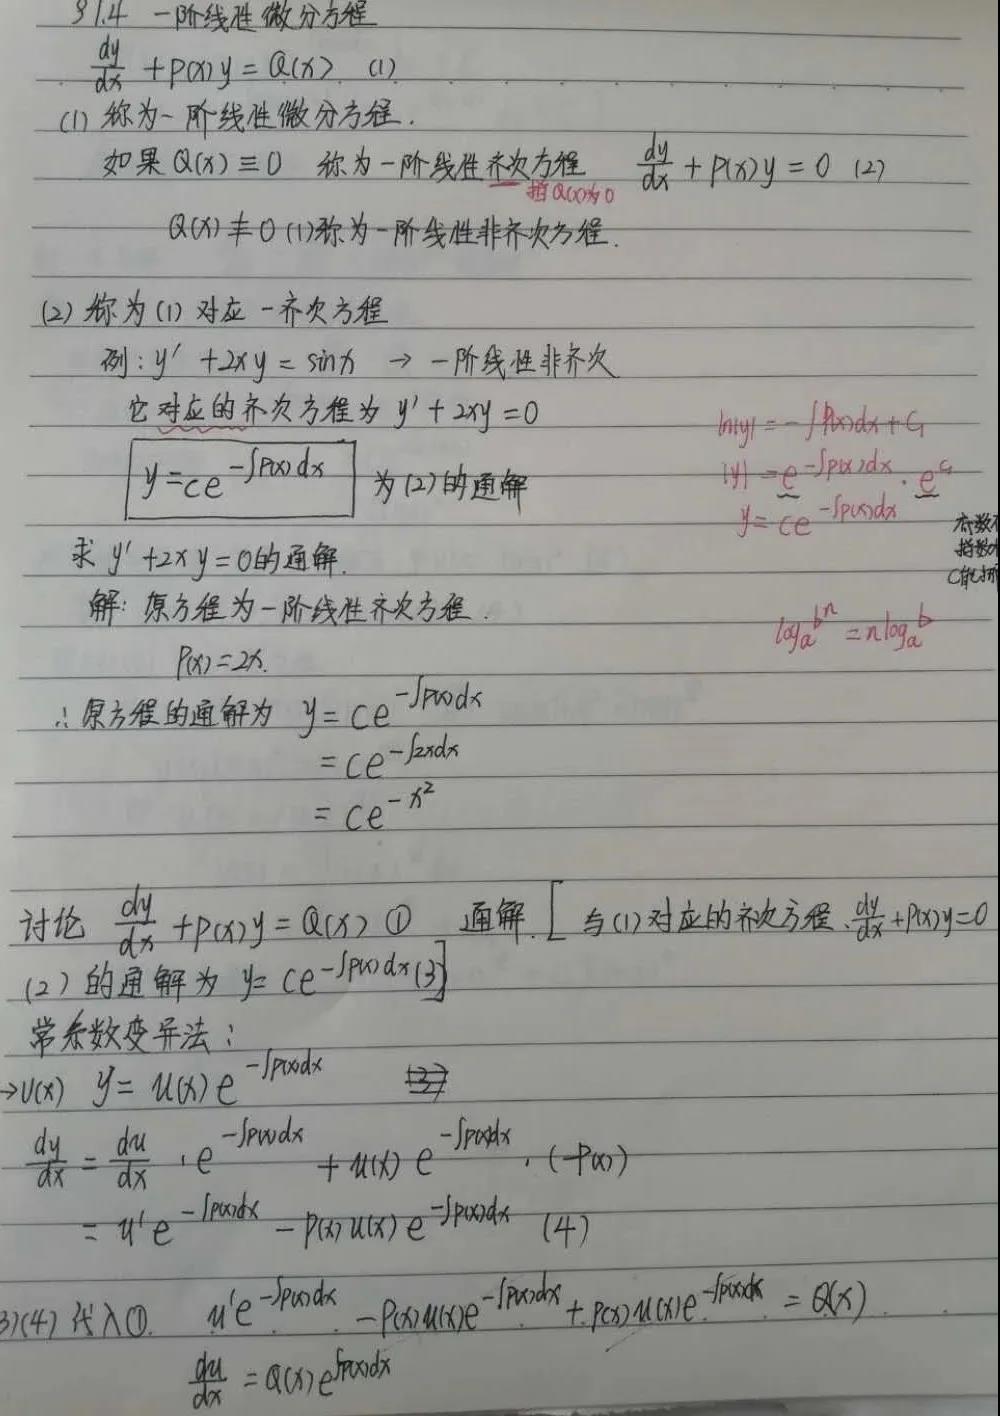 §1.4 一阶线性微分方程
dy/dx + P(x)y = Q(x) (1)
(1) 称为一阶线性微分方程.
如果 Q(x) ≡ 0 称为一阶线性齐次方程 dy/dx + P(x)y = 0 (2)
指Q(x)为0
Q(x) ≢ 0 (1)称为一阶线性非齐次方程.
(2) 称为(1) 对应一齐次方程
例: y' + 2xy = sinx → 一阶线性非齐次
它对应的齐次方程为 y' + 2xy = 0
ln|y| = -∫P(x)dx + C₁
y = ce^(-∫P(x)dx) 为(2)的通解
|y| = e^(-∫P(x)dx) · e^(C₁)
y = ce^(-∫P(x)dx)
求 y' + 2xy = 0的通解.
解: 原方程为一阶线性齐次方程.
logₐbⁿ = n logₐb
P(x) = 2x.
∴ 原方程的通解为 y = ce^(-∫P(x)dx)
= ce^(-∫2xdx)
= ce^(-x²)
讨论 dy/dx + P(x)y = Q(x) ① 通解. [与(1)对应的齐次方程. dy/dx + P(x)y = 0
(2) 的通解为 y = ce^(-∫P(x)dx) (3)]
常系数变异法:
→ u(x) y = u(x)e^(-∫P(x)dx)
dy/dx = du/dx · e^(-∫P(x)dx) + u(x)e^(-∫P(x)dx) · (-P(x))
= u'e^(-∫P(x)dx) - P(x)u(x)e^(-∫P(x)dx) (4)
3)(4) 代入①. u'e^(-∫P(x)dx) - P(x)u(x)e^(-∫P(x)dx) + P(x)u(x)e^(-∫P(x)dx) = Q(x)
du/dx = Q(x)e^(∫P(x)dx)